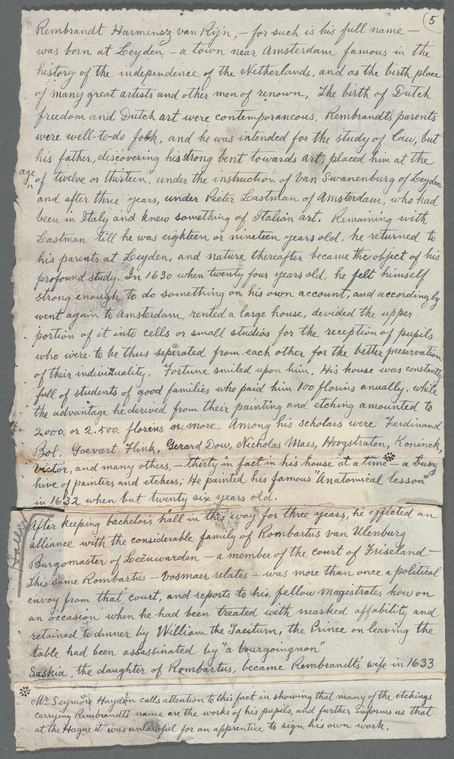 5
Rembrandt Harmensz van Rijn, – for such is his full name –
was born at Leyden – a town near Amsterdam famous in the
history of the independence of the Netherlands, and as the birth place
of many great artists and other men of renown. The birth of Dutch
freedom and Dutch art were contemporaneous. Rembrandt's parents
were well-to-do folk, and he was intended for the study of law, but
his father, discovering his strong bent towards art, placed him at the
age of "twelve or thirteen," under the instruction of Van Swanenburg of Leyden
and after three years, under Pieter Lastman of Amsterdam, who had
been in Italy and knew something of Italian art. Remaining with
Lastman till he was eighteen or nineteen years old, he returned to
his parents at Leyden, and nature thereafter became the object of his
profound study. In 1630 when twenty four years old, he felt himself
strong enough to do something on his own account, and accordingly
went again to Amsterdam, rented a large house, devided the upper
portion of it into cells or small studios for the reception of pupils
who were to be thus seperated from each other for the better preservation
of their individuality. Fortune smiled upon him. His house was constantly
full of students of good families who paid him 100 florins anually, while
the advantage he derived from their painting and etching amounted to
2000, or 2.500, florens or more. Among his scholars were Ferdinand
Bol, Goevart Flink, Gerard Dow, Nicholas Maes, Hoogstraten, Koninck,
Victor, and many others, – thirty in fact in his house at a time – a busy
hive of painters and etchers. He painted his famous "Anatomical lesson"
in 1632 when but twenty six years old.
After keeping bachelors hall in this way for three years, he effected an
alliance with the considerable family of Rombartus van Ulenburg
Burgomaster of Leeuwarden – a member of the court of Friseland –
This same Rombartus – Vosmaer relates – was more than once a political
envoy from that court, and reports to his fellow magistrates how on
an occasion when he had been treated with marked affability, and
retained to dinner by William the Taciturn, the Prince on leaving the
table had been assassinated by "a bourgoingnon"
Saskia, the daughter of Rombartus, became Rembrandt's wife in 1633
Mr. Seymore Haydon calls attention to this fact in showing that many of the etchings
carrying Rembrandt's name are the works of his pupils, and further informs us that
at the Hague it was unlawful for an apprentice to sign his own work.